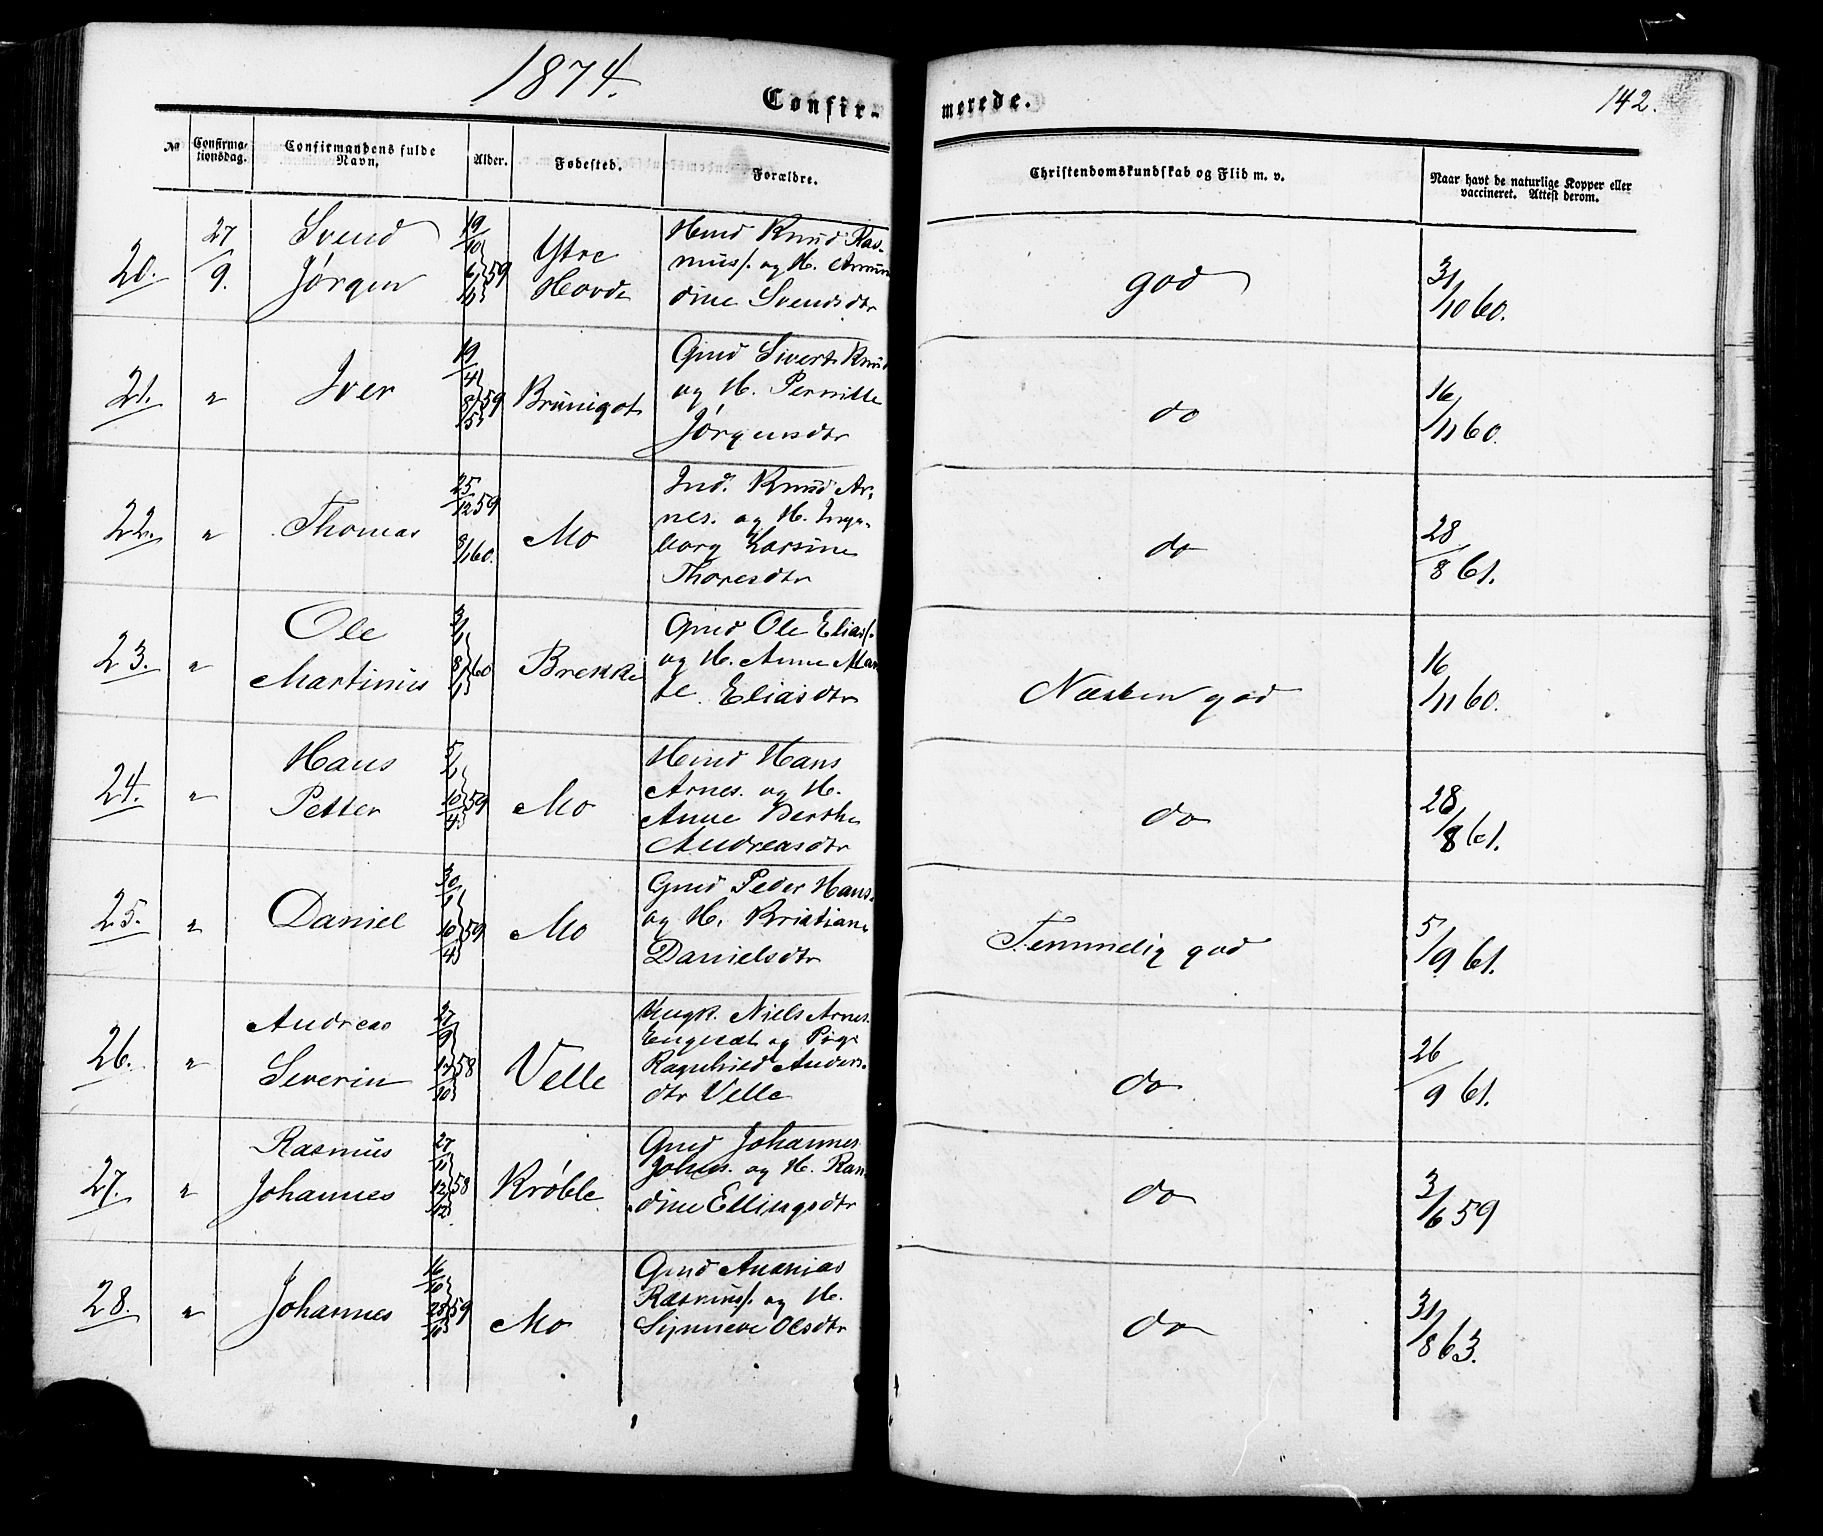 1874.
Confirmerede.
142.
No Confirmationsdag. Confirmandens fulde Navn. Alder. Fødested. Forældre. Christendomskundskab og Flid m. v. Naar havt de naturlige Kopper eller vaccineret. Attest derom.
20. 27/9. Svend Jørgen 19/10 59 Ytre Hovde
Hmd Knud Rasmus/. og H.
dine Svendsdtr
god
31/10 60.
21. " Iver 19/4 8/5 59
Gmd Sivert Knud
og H. Pernille
Jørgensdtr
do
16/11 60.
22. " Thomas 25/12 59 8/1 60. Mo
Ind. Knud Ar-
nes. og H. Inge-
borg Larsine
Thoresdtr
do
28/8 61.
23. " Ole Martinus 3/1 8/1 60 Brekke
Gmd Ole Elias/.
og H. Anne Mar
te Eliasdtr
Næsten god
16/11 60.
24. " Hans Petter 10/4 59 Mo
Hmd Hans
Arnes. og H.
Anne Berthe
Andreasdtr
do
28/8 61.
25. " Daniel 30/1 10/4 59 Mo
Gmd Peder Hans.
og H. Kristiane
Danielsdtr
Temmelig god
5/9 61.
26. " Andreas Severin 27/9 /10 58 Velle
Ungk. Niels Arnes.
Engeset og Pige
Ragnhild Anders-
dtr Velle
do
26/9 61.
27. " Rasmus Johannes 27/11 12/12 58 Krøble
Gmd Johannes
Johns. og H. Ran
dine Ellingsdtr
do
3/6 59
28. " Johannes 16/10 28/10 59 Mo
Gmd Ananias
Rasmus/. og H.
Synneve Olsdtr
do
31/8 63.